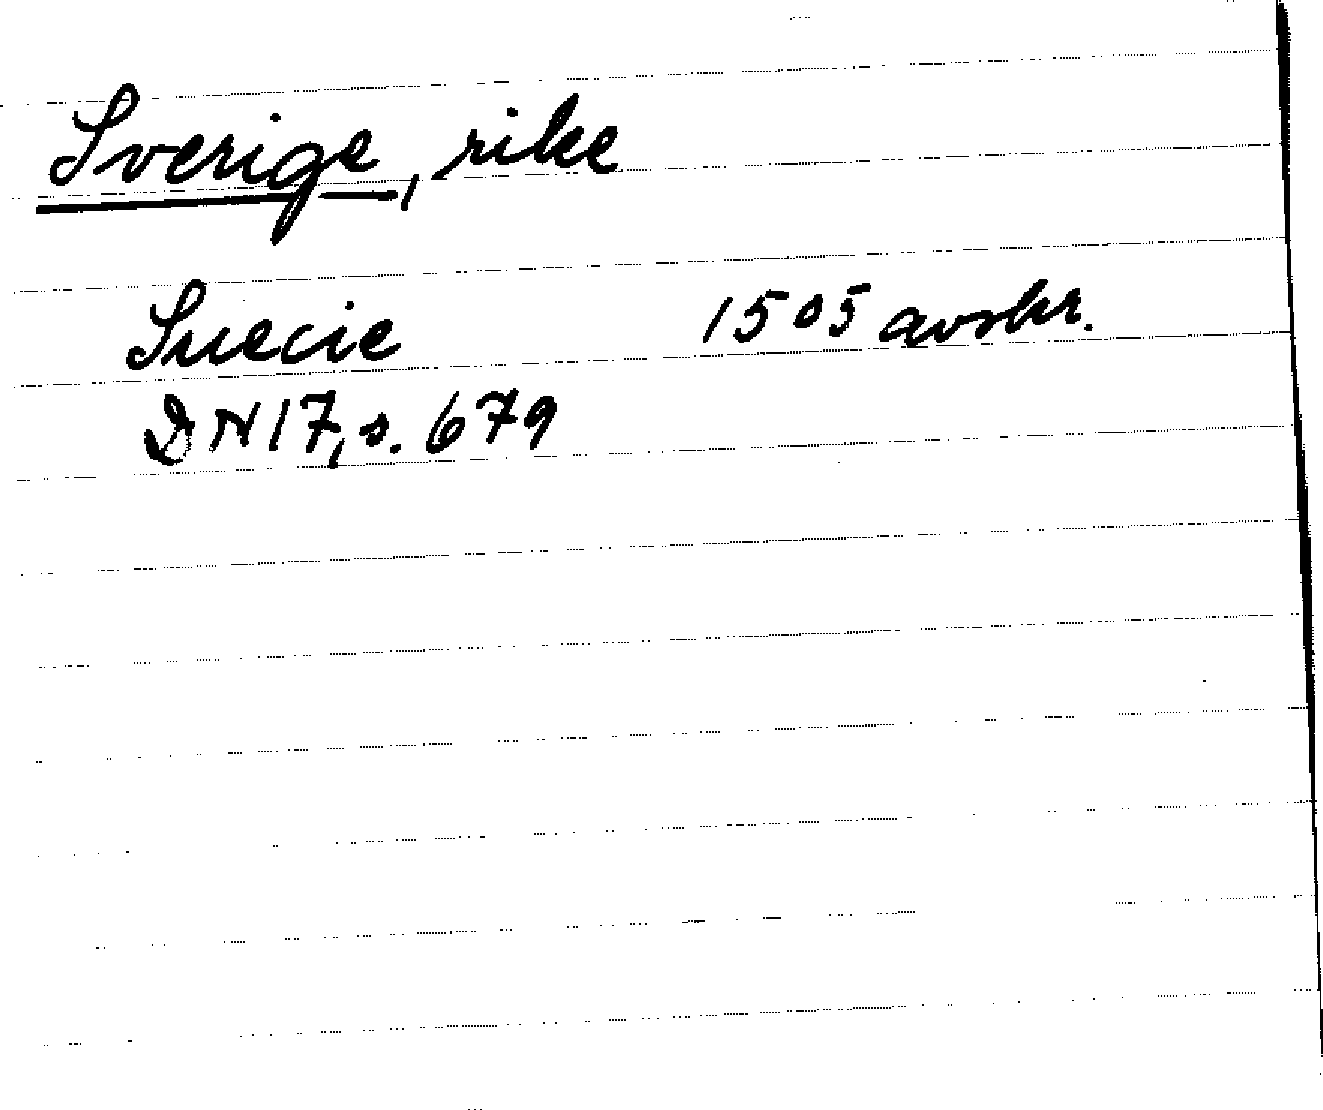 Sverige, rike
Suecie 1505 avskr.
DN 17, s. 679